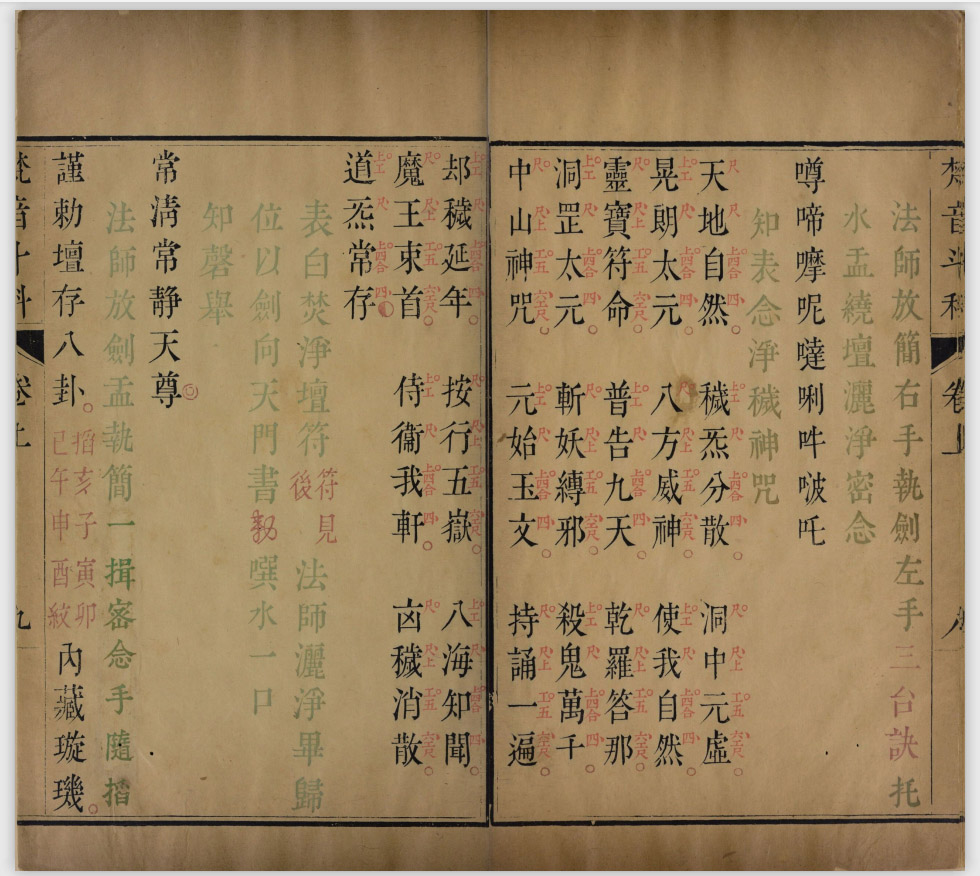 梵音斗科 卷上 八
法師放簡右手執劍左手三台訣托
水盂繞壇灑淨密念
噂啼嚤呢噠唎吽啵吒
知表念淨穢神咒
天地自然 穢炁分散 洞中元虛
晃朗太元 八方威神 使我自然
靈寶符命 普告九天 乾羅答那
洞罡太元 斬妖縛邪 殺鬼萬千
中山神咒 元始玉文 持誦一遍
却穢延年 按行五嶽 八海知聞
魔王束首 侍衞我軒 凶穢消散
道炁常存
表白焚淨壇符 符見後 法師灑淨畢歸
位以劍向天門書勑噀水一口
知磬舉
常淸常静天尊
法師放劍盂執簡一揖密念手隨搯
謹勅壇存八卦 搯亥子寅卯 巳午申酉紋 內藏璇璣
梵音斗科 卷上 九